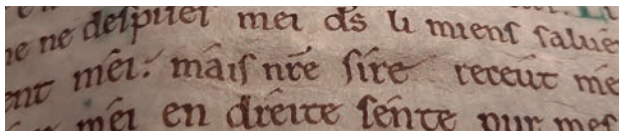 ne ne despitel mei ds li miens salue
ent mei: mais nr̄e sire receut me
mei en dreite sente pur mes